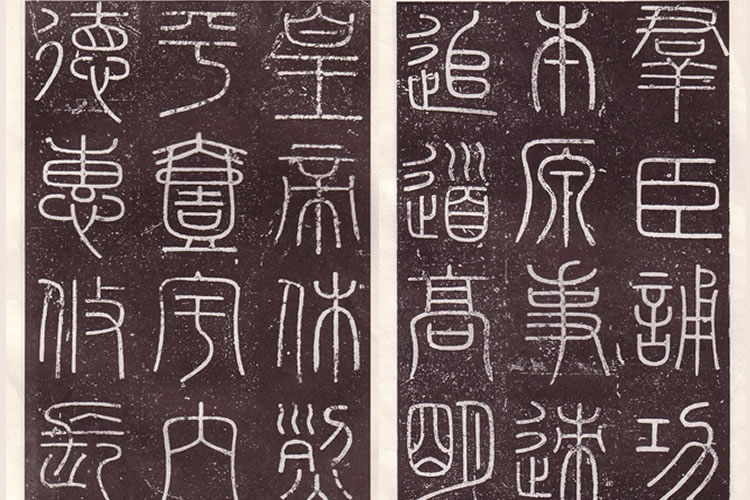 羣臣誦功
本原事迹
追道高明
皇帝休烈
平壹宇內
德惠攸長